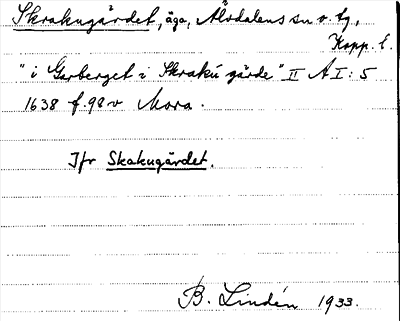 Skrakugärdet, äga, Älvdalens sn o. tg,
Kopp. l.
"i Garberget i Skraku gärde" II A I: 5
1638 f. 98 v Mora.
Jfr Skakugärdet.
B. Lindén 1933.